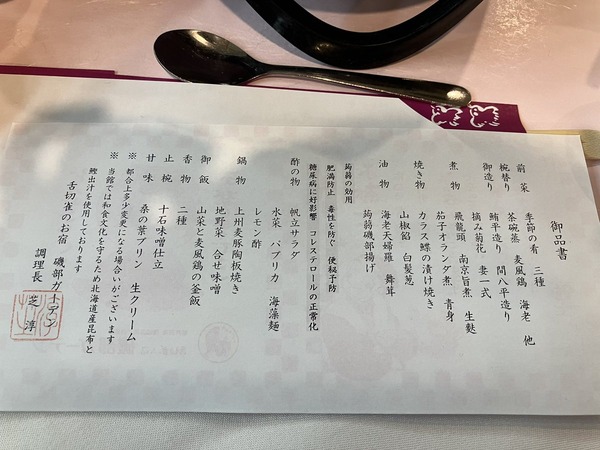 御品書
前菜 季節の肴 三種
椀替り 茶碗蒸 麦風鶏 海老 他
御造り 鮪平造り 間八平造り
摘み菊花 妻一式
煮物 飛龍頭 南京旨煮 生麩
茄子オランダ煮 青身
焼き物 カラス鰈の漬け焼き
山椒餡 白髪葱
油物 海老天婦羅 舞茸
蒟蒻磯部揚げ
蒟蒻の効用
肥満防止 毒性を防ぐ 便秘予防
糖尿病に好影響 コレステロールの正常化
酢の物 帆立サラダ
水菜 パプリカ 海藻麺
レモン酢
鍋物 上州麦豚陶板焼き
地野菜 合せ味噌
御飯 山菜と麦風鶏の釜飯
香物 二種
止椀 十石味噌仕立
甘味 桑の葉プリン 生クリーム
※ 都合上多少変更になる場合いがございます
※ 当館では和食文化を守るため北海道産昆布と
鰹出汁を使用しております
舌切雀のお宿 磯部ガーデン
調理長 芝 淳